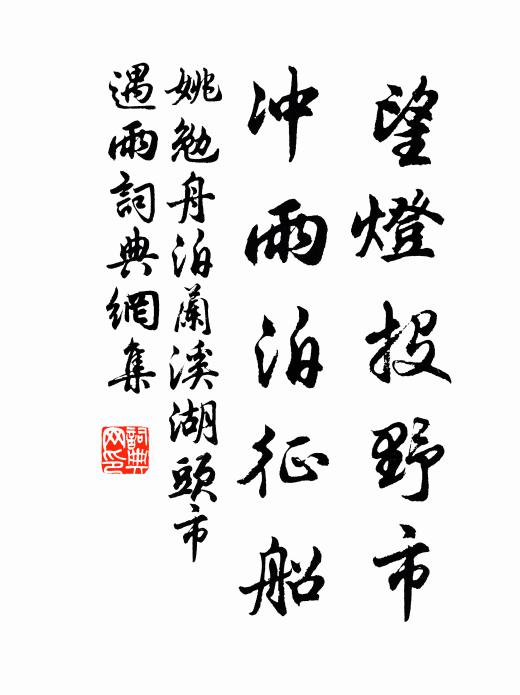 望燈投野市
冲雨泊征船
姚勉舟泊蘭溪湖頭市
遇雨詞典網集
詞典網印